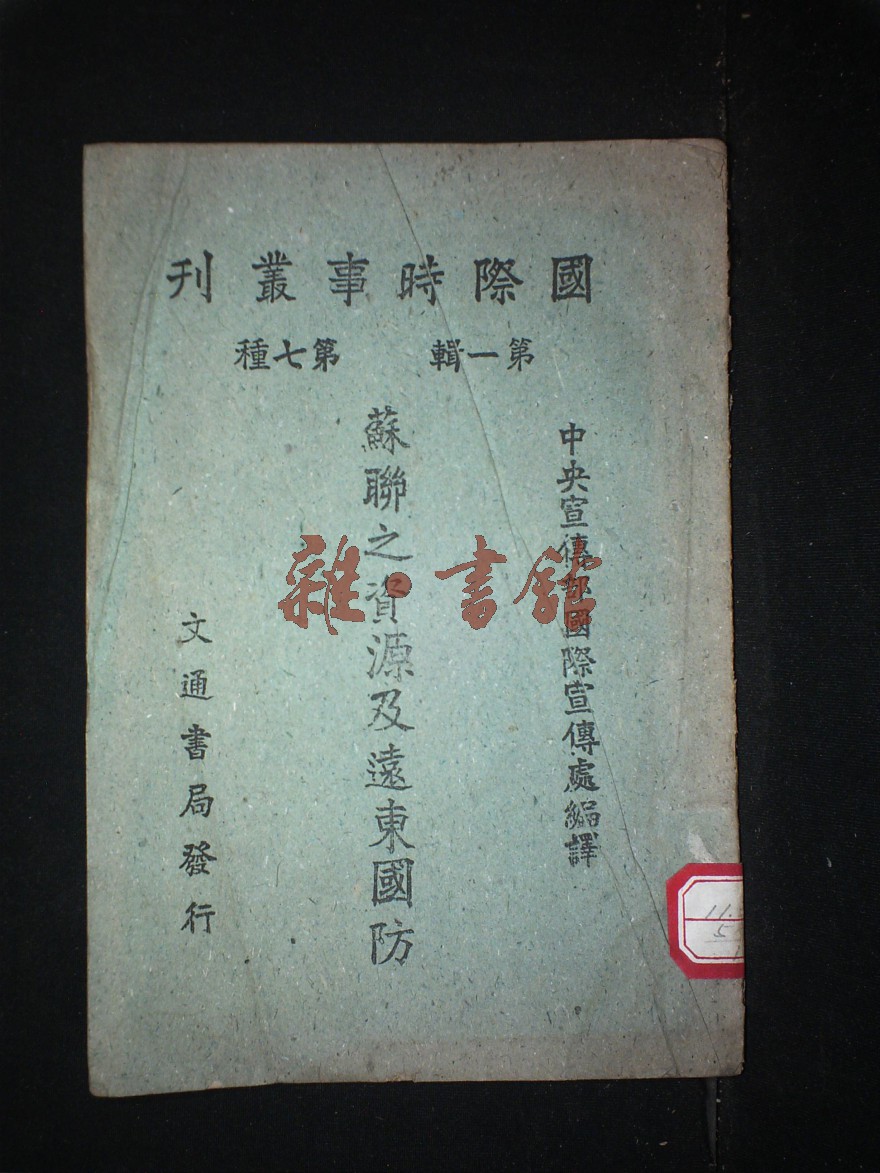 國際時事叢刊
第一輯 第七種
中央宣傳部國際宣傳處編譯
蘇聯之資源及遠東國防
文通書局發行
雜·書館
11.
5